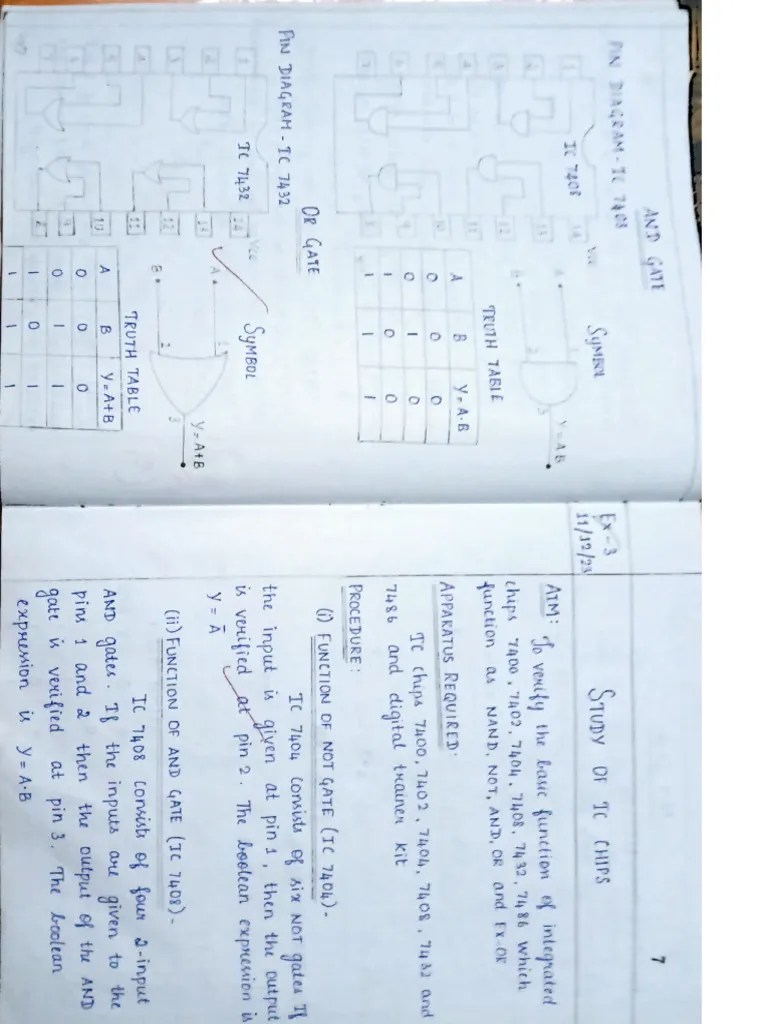 AND GATE
PIN DIAGRAM - IC 7408
SYMBOL
1 2 3 4 5 6 7
IC 7408
14 13 12 11 10 9 8
Vcc
A
B
1
2
3
Y=AB
TRUTH TABLE
A B Y=A·B
0 0 0
0 1 0
1 0 0
1 1 1
OR GATE
PIN DIAGRAM - IC 7432
SYMBOL
1 2 3 4 5 6 7
IC 7432
14 12 11 10 9 8
Vcc
A
B
1
2
3
Y=A+B
TRUTH TABLE
A B Y=A+B
0 0 0
0 1 1
1 0 1
1 1 1
7
Ex-3
11/12/23
STUDY OF IC CHIPS
AIM: To verify the basic function of integrated
chips 7400, 7402, 7404, 7408, 7432, 7486 which
function as NAND, NOT, AND, OR and EX-OR
APPARATUS REQUIRED:
IC chips 7400, 7402, 7404, 7408, 7432 and
7486 and digital trainer kit
PROCEDURE:
(i) FUNCTION OF NOT GATE (IC 7404)-
IC 7404 consists of six NOT gates If
the input is given at pin 1, then the output
is verified at pin 2. The boolean expression is
Y = Ā
(ii) FUNCTION OF AND GATE (IC 7408)-
IC 7408 consists of four 2-input
AND gates. If the inputs are given to the
pins 1 and 2 then the output of the AND
gate is verified at pin 3. The boolean
expression is Y = A·B